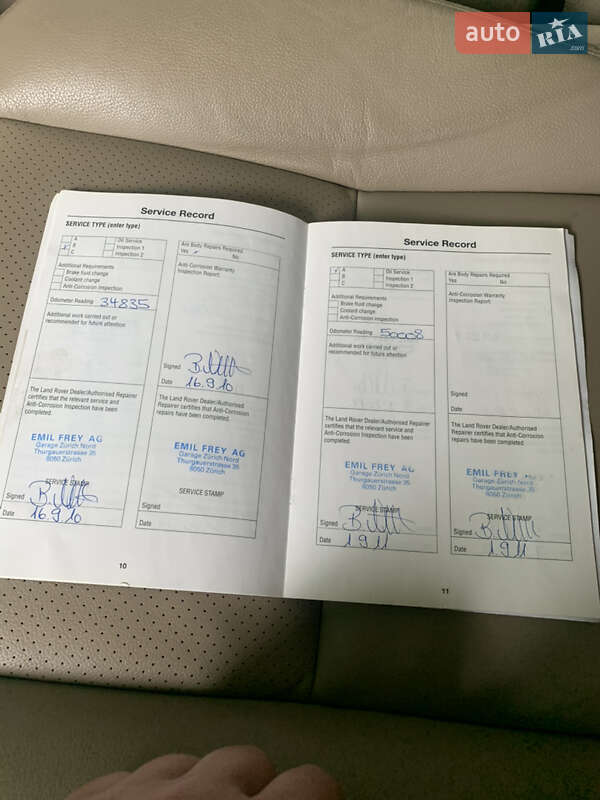 auto RIA .com
Service Record
SERVICE TYPE (enter type)
A
B
C
Oil Service
Inspection 1
Inspection 2
Additional Requirements
Brake fluid change
Coolant change
Anti-Corrosion inspection
Odometer Reading 34835
Additional work carried out or
recommended for future attention
The Land Rover Dealer/Authorised Repairer
certifies that the relevant service and
Anti-Corrosion Inspection have been
completed.
EMIL FREY AG
Garage Zürich Nord
Thurgauerstrasse 35
8050 Zürich
SERVICE STAMP
Signed
Date 16.9.10
Are Body Repairs Required
Yes
No
Anti-Corrosion Warranty
Inspection Report:
Signed
Date 16.9.10
The Land Rover Dealer/Authorised
Repairer certifies that Anti-Corrosion
repairs have been completed.
EMIL FREY AG
Garage Zürich Nord
Thurgauerstrasse 35
8050 Zürich
SERVICE STAMP
Signed
Date
10
Service Record
SERVICE TYPE (enter type)
A
B
C
Oil Service
Inspection 1
Inspection 2
Additional Requirements
Brake fluid change
Coolant change
Anti-Corrosion inspection
Odometer Reading 50008
Additional work carried out or
recommended for future attention
The Land Rover Dealer/Authorised Repairer
certifies that the relevant service and
Anti-Corrosion Inspection have been
completed.
EMIL FREY AG
Garage Zürich Nord
Thurgauerstrasse 35
8050 Zürich
SERVICE STAMP
Signed
Date 1.9.11
Are Body Repairs Required
Yes
No
Anti-Corrosion Warranty
Inspection Report:
Signed
Date
The Land Rover Dealer/Authorised
Repairer certifies that Anti-Corrosion
repairs have been completed.
EMIL FREY AG
Garage Zürich Nord
Thurgauerstrasse 35
8050 Zürich
SERVICE STAMP
Signed
Date 1.9.11
11